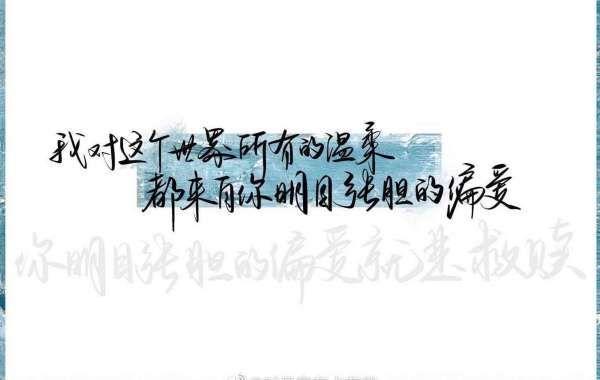 我对这个世界所有的温柔
都来自你明目张胆的偏爱
你明目张胆的偏爱就是救赎